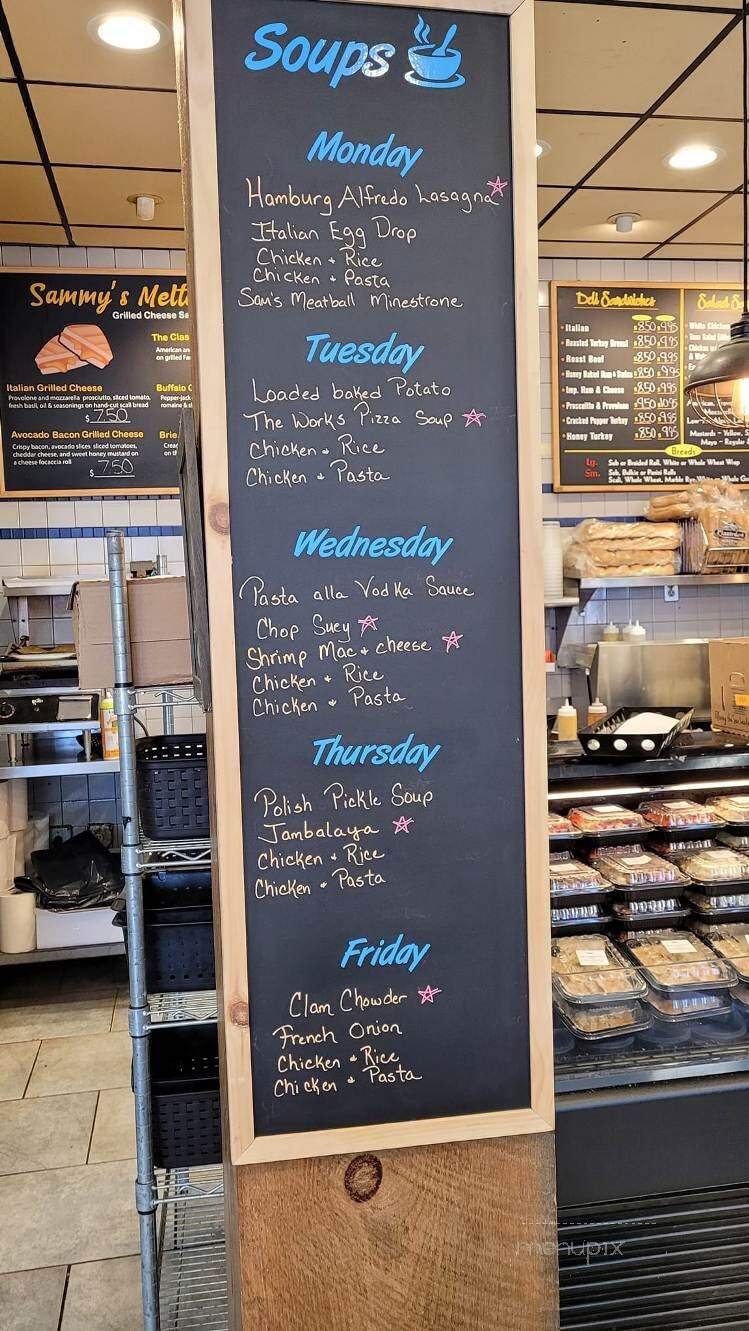 Soups
Monday
Hamburg Alfredo Lasagna
Italian Egg Drop
Chicken + Rice
Chicken + Pasta
Sam's Meatball Minestrone
Tuesday
Loaded baked Potato
The Works Pizza Soup
Chicken + Rice
Chicken + Pasta
Wednesday
Pasta alla Vodka Sauce
Chop Suey
Shrimp Mac + cheese
Chicken + Rice
Chicken + Pasta
Thursday
Polish Pickle Soup
Jambalaya
Chicken + Rice
Chicken + Pasta
Friday
Clam Chowder
French Onion
Chicken + Rice
Chicken + Pasta
Sammy's Melt
Grilled Cheese Sa
The Clas
American an
on grilled
Italian Grilled Cheese
Provolone and mozzarella prosciutto, sliced tomato,
fresh basil, oil & seasonings on hand-cut scali bread
$ 7.50
Buffalo C
Pepper-jack
romaine &
Avocado Bacon Grilled Cheese
Crispy bacon, avocado slices sliced tomatoes,
cheddar cheese, and sweet honey mustard on
a cheese focaccia roll
$ 7.50
Brie
on th
Deli Sandwiches
Italian $8.50 $9.95
Roasted Turkey Breast $8.50 $9.95
Roast Beef $8.50 $9.95
Honey Baked Ham & Swiss $8.50 $9.95
Imp. Ham & Cheese $8.50 $9.95
Prosciutto & Provolone $9.50 $10.95
Cracked Pepper Turkey $8.50 $9.95
Honey Turkey $8.50 $9.95
Salad Sa
White Chicken
Tuna Salad
Breads
Lg. Sub or Braided Roll, White or Whole Wheat Wrap
Sm. Sub, Bulkie or Panini Rolls
Scali, Whole Wheat, Marble Rye,
menupix